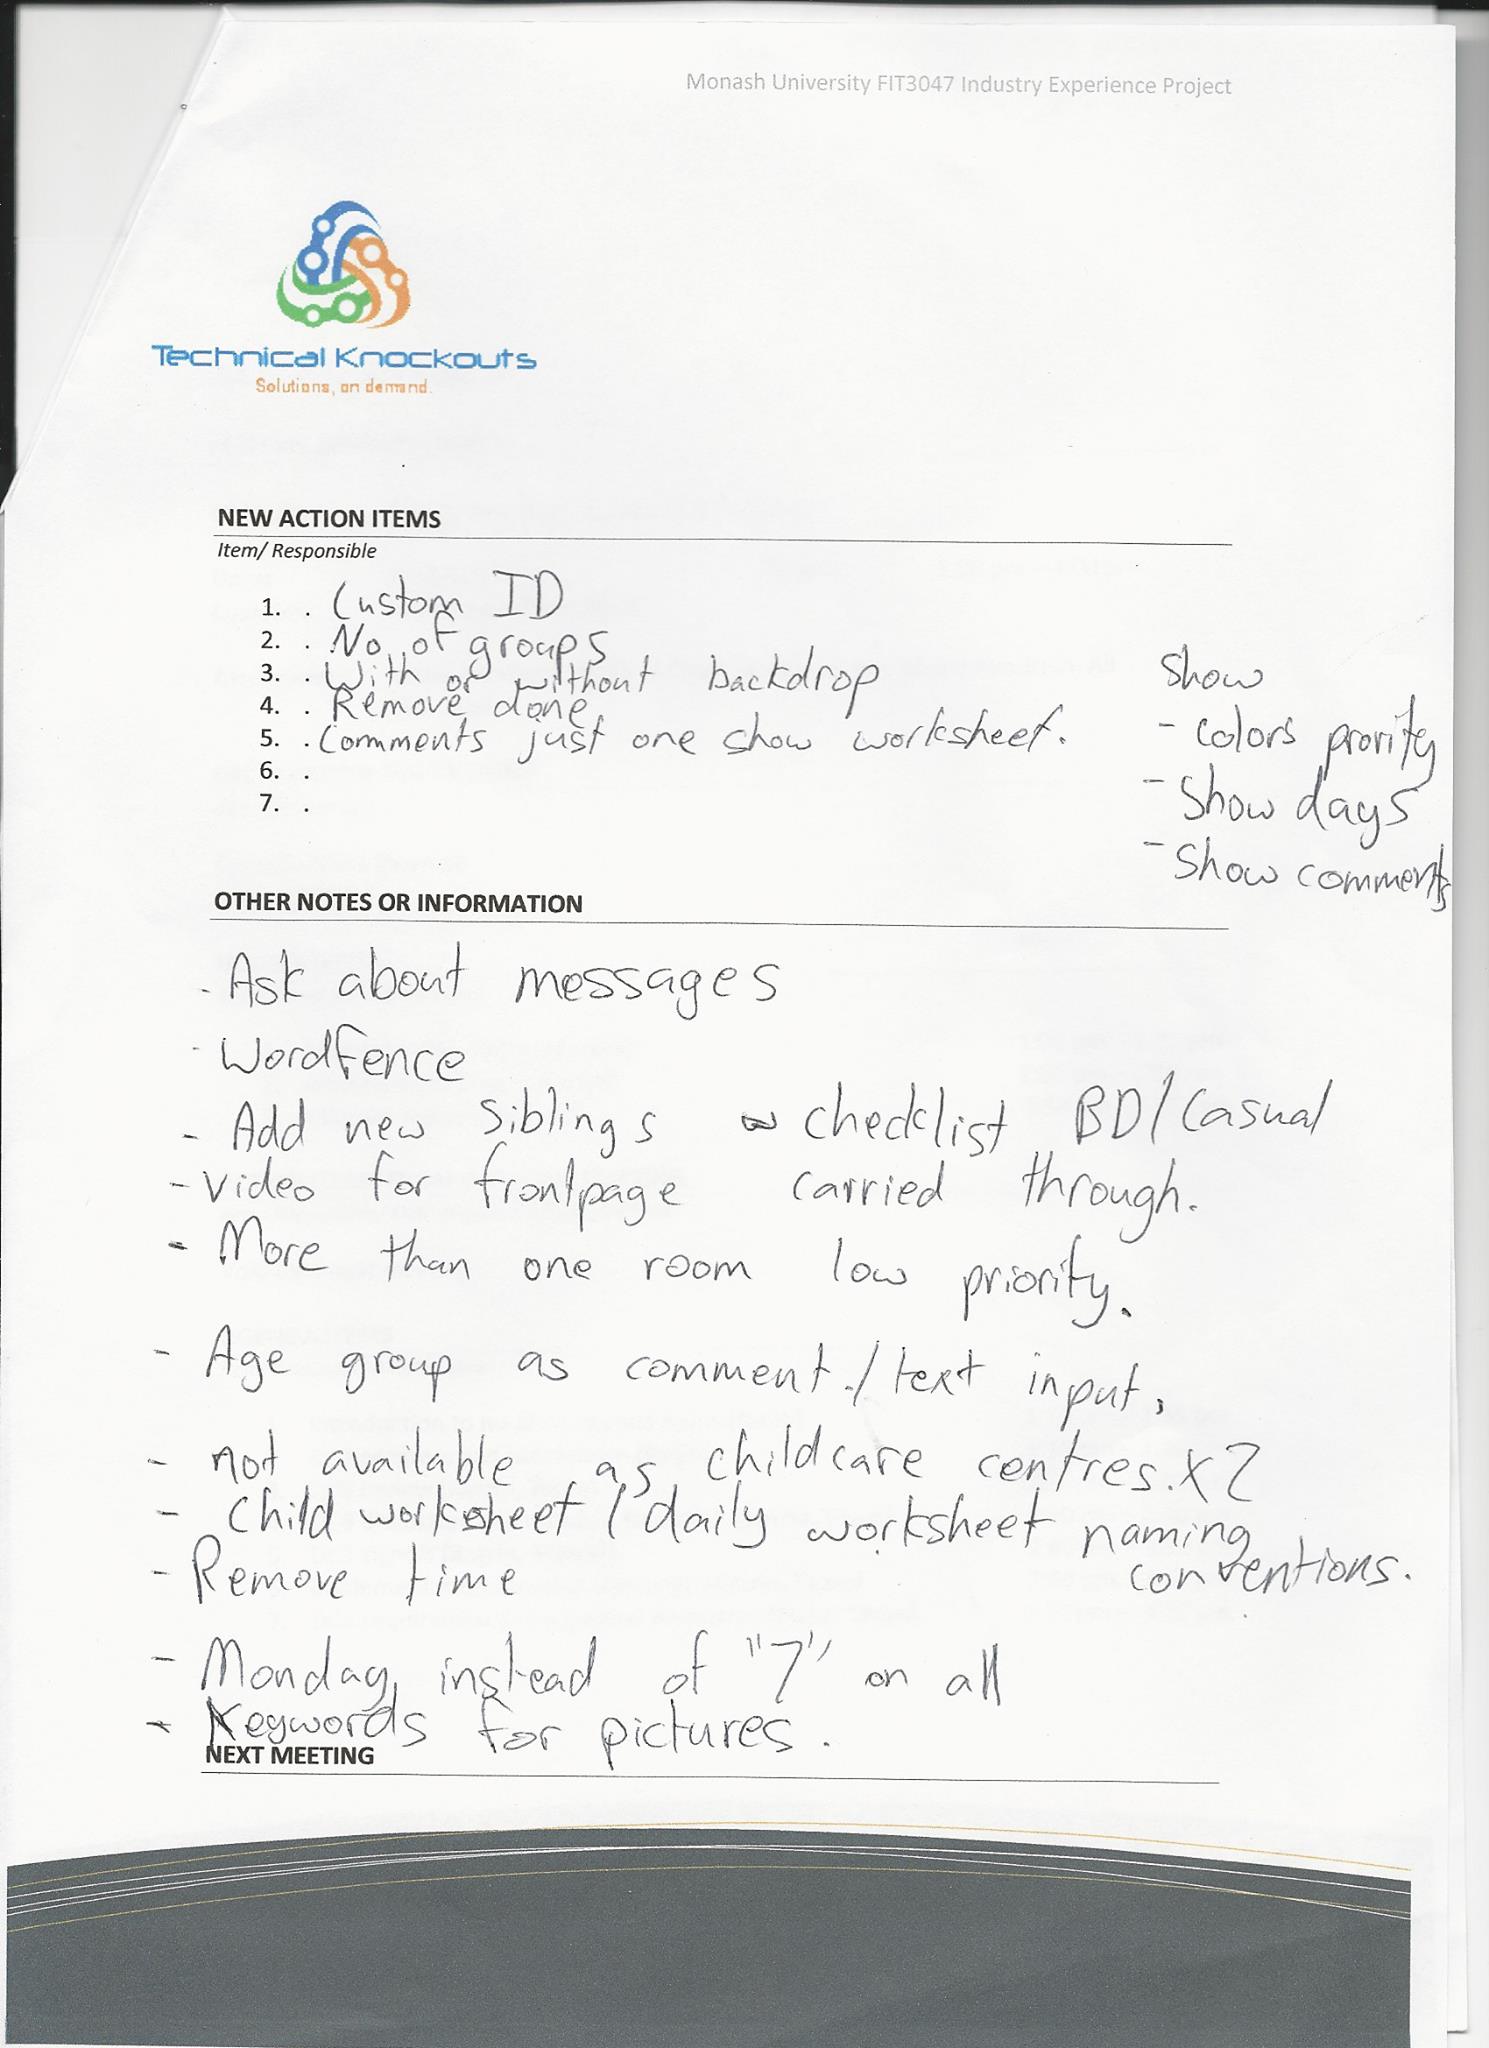 Monash University FIT3047 Industry Experience Project
Technical Knockouts
Solutions, on demand.
NEW ACTION ITEMS
Item/ Responsible
1. . Custom ID
2. . No. of groups
3. . With or without backdrop
4. . Remove done
5. . Comments just one show worksheet.
6. .
7. .
Show
- colors prority
- Show days
- Show comments
OTHER NOTES OR INFORMATION
- Ask about messages
- Wordfence
- Add new siblings checklist BD/Casual
- Video for frontpage carried through.
- More than one room low priority.
- Age group as comment./text input.
- not available as childcare centres. x2
- Child worksheet / daily worksheet naming
conventions.
- Remove time
- Monday, instead of "7" on all
- Keywords for pictures.
NEXT MEETING